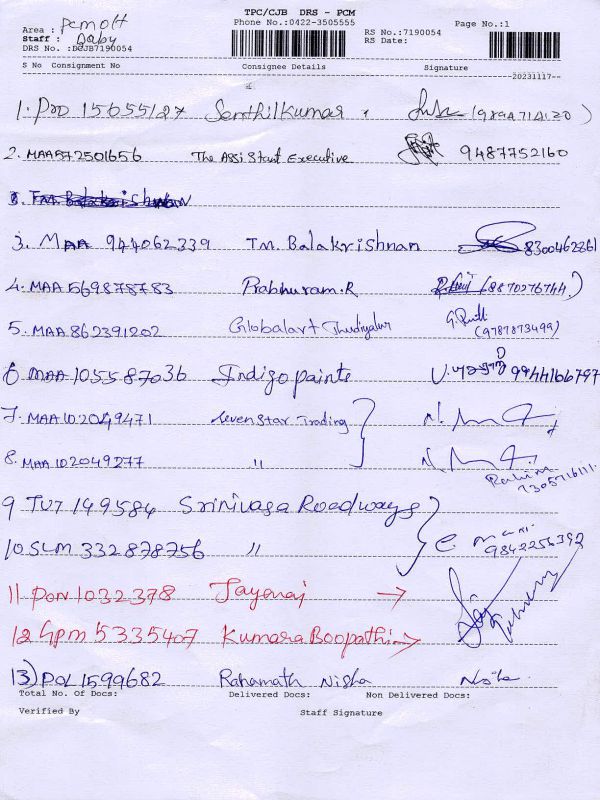 TPC/CJB DRS - PCM
Phone No.:0422-3505555 Page No.:1
Area : PCMOH
Staff : Baby
DRS No. :DCJB7190054
RS No.:7190054
RS Date:
S No Consignment No Consignee Details Signature
--20231117--
1. POD 15655127 Senthilkumar
2. MAA572501656 The Assistant Executive 9487752160
3. MAA 944062339 T.M. Balakrishnan 8300462861
4. MAA 569878783 Prabhuram.R (8870276744.)
5. MAA 862391202 Globalart Thudiyalur (9787873499)
6 MAA 1055587036 Indigo paints 9944166797
7. MAA 102049471 Sevenstar Trading
8. MAA 102049277 "
Rahim
7305716111.
9 TUT 149584 Srinivasa Roadways
10 SLM 332878756 " e mani
9842256392
11 PON 1032378 Jayaraj →
12 GPM 5335407 Kumara Boopathi →
13) POL 1599682 Rahamath Nisha Nisha
Total No. Of Docs: Delivered Docs: Non Delivered Docs:
Verified By Staff Signature